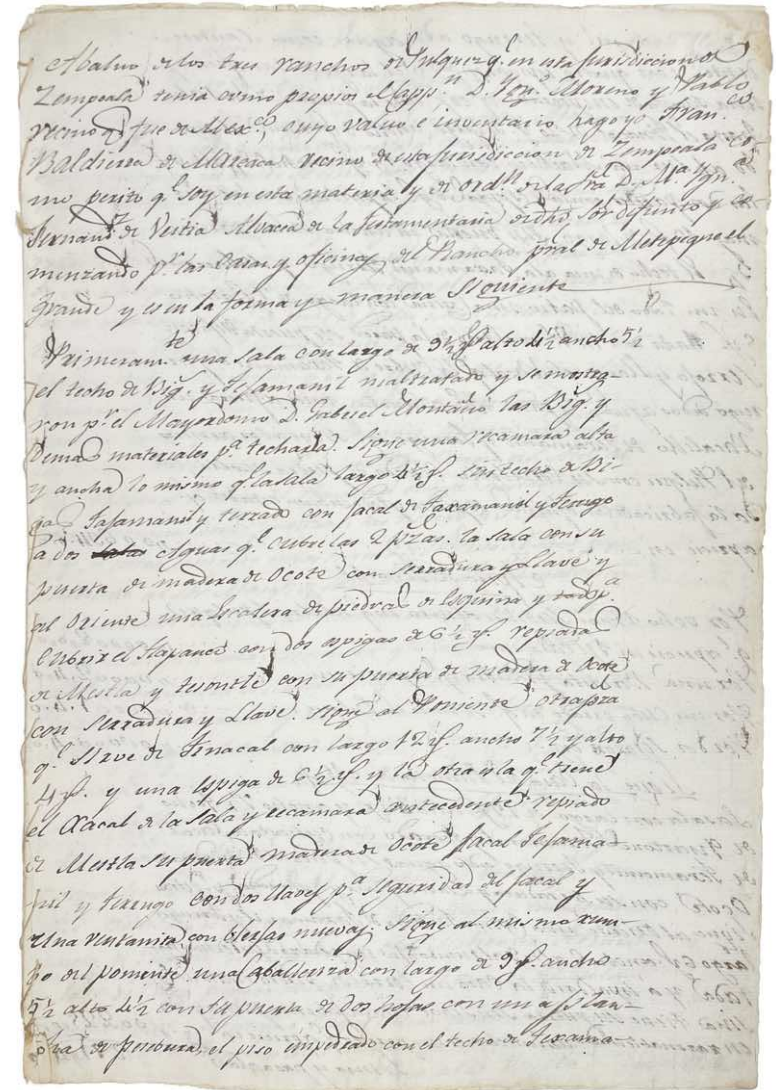 Abaluo de los tres ranchos de Pulque q.e en esta Jurisdiccion de
Zempoala tenia como propios el Capp.n D. Ygn.o Moreno y Pablo
vecino q.e fue de Mex.co, cuyo valuo e inventario hago yo Fran.co
Balderra de Maraca vecino de esta Jurisdiccion de Zempoala co-
mo perito q.e soy en esta materia y de ord.n de la Sra D. M.a Ygn.a
Fernand.z de Vertia Alvacea de la testamentaria de dho Sor difunto y co-
menzando p.r las Casas y oficinas del Rancho pral de Metepeque el
grande y es en la forma y manera siguiente
Primeram.te una sala con largo de 9½ alto 4½ ancho 5½
el techo de Big.s y Tejamanil maltratado y se mostra-
ron p.r el Mayordomo D. Gabriel Montaño las Big.s y
demas materiales p.a techarla. Sigue una recamara alta
y ancha lo mismo q.e la sala largo 4½ sin techo de Bi-
gas Tajamanil y terrado con jacal de Taxamanil y
a dos salas Aguas q.e cubre las 2 pzas. la sala con su
puerta de madera de Ocote con serradura y Llave y
al Oriente una Escalera de piedra de Esquina y p.a
Cubrir el Tapanco con dos espigas de 6½ repiada
de Mescla y tesontle con su puerta de madera de Ocote
con serradura y Llave. Sigue al Poniente otra pza
q.e sirve de Tinacal con largo 12 ancho 7½ y alto
4 y una espiga de 6½ y la otra la q.e tiene
el Xacal de la sala y recamara antecedente repiado
de Mescla su puerta madera de Ocote Jacal Tejama-
nil y con dos Llaves p.a seguridad del jacal y
una ventanita con nuevas. Sigue al mismo rum-
bo del poniente una Caballeriza con largo de 9 ancho
5½ alto 4½ con su puerta de dos hojas con un
de el piso empedrado con el techo de Texama-